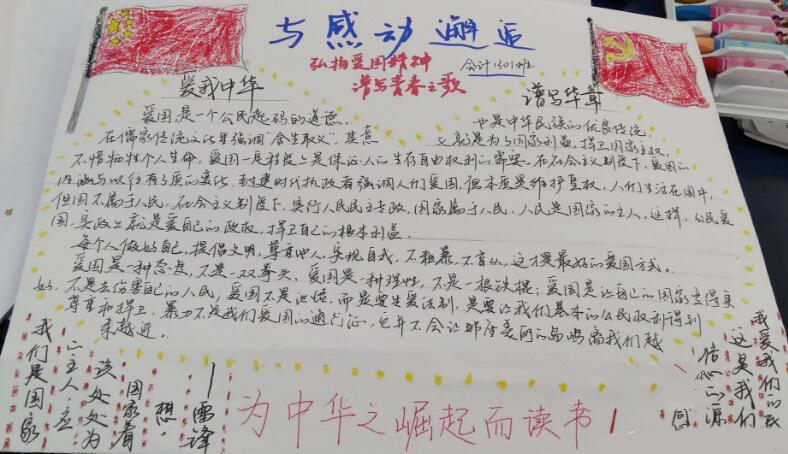 与感动邂逅
弘扬爱国精神
谱写青春之歌
会计1301班
爱我中华
谱写华章
爱国是一个公民起码的道德，也是中华民族的优良传统。
在儒家传统文化里强调“舍生取义”，其意义就是为了国家利益，捍卫国家主权，
不惜牺牲个人生命，爱国一定程度上是保证人的生存自由权利的需要。在社会主义制度下，爱国的
内涵与以往有了质的变化，封建时代执政者强调人们爱国，但本质是维护皇权，人们生活在国中，
但国不属于人民。在社会主义制度下，实行人民民主专政，国家属于人民，人民是国家的主人，这样，公民爱
国，实政上就是爱自己的政权，捍卫自己的根本利益。
每个人做好自己，提倡文明，尊重他人，实现自我，不粗暴，不盲从，这才是最好的爱国方式。
爱国是一种态度，不是一双拳头，爱国是一种理性，不是一根铁棍；爱国是让自己的国家变得更
好，不是去伤害自己的人民；爱国不是泄愤，而是要生爱法制，是要让我们基本的公民权利得到
尊重和捍卫，暴力不是我们爱国的通行证，它并不会让那座美丽的岛屿离我们越
来越近。
我们是国家
的主人，应
该处处为
国家着
想。
——雷锋
为中华之崛起而读书！
我爱我们的
这是我们
信心的源